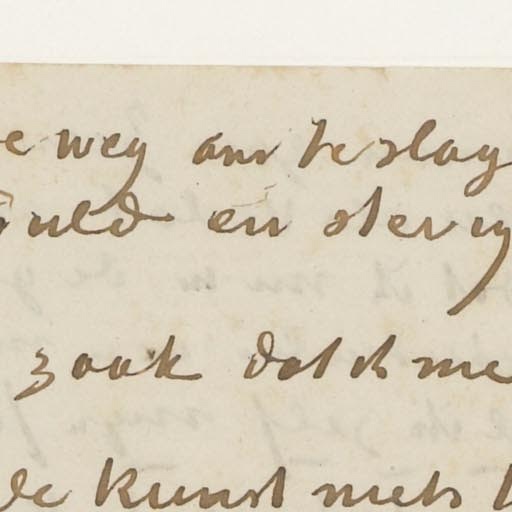 e weg om te slag
uld en stevig
zaak dat ik me
de kunst niets